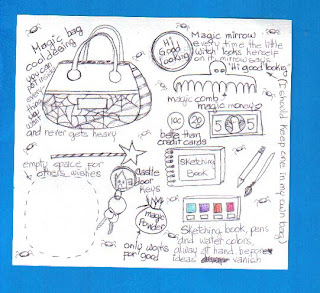 Magic bag
cool desing
you can
put inside
what
you
want
and never gets heavy
Hi
Good
looking
Magic mirrow
every time the little
witch looks herself
on it, mirrow says
"Hi good looking"
(I should keep one in my own bag)
magic comb
magic money
100
20
5
5
better than
credit cards
empty space for
others wishes
Castle
door
keys
Sketching
Book
magic
Powder
only works
for good
Sketching book, pens
and water colors,
always at hand before
ideas vanish